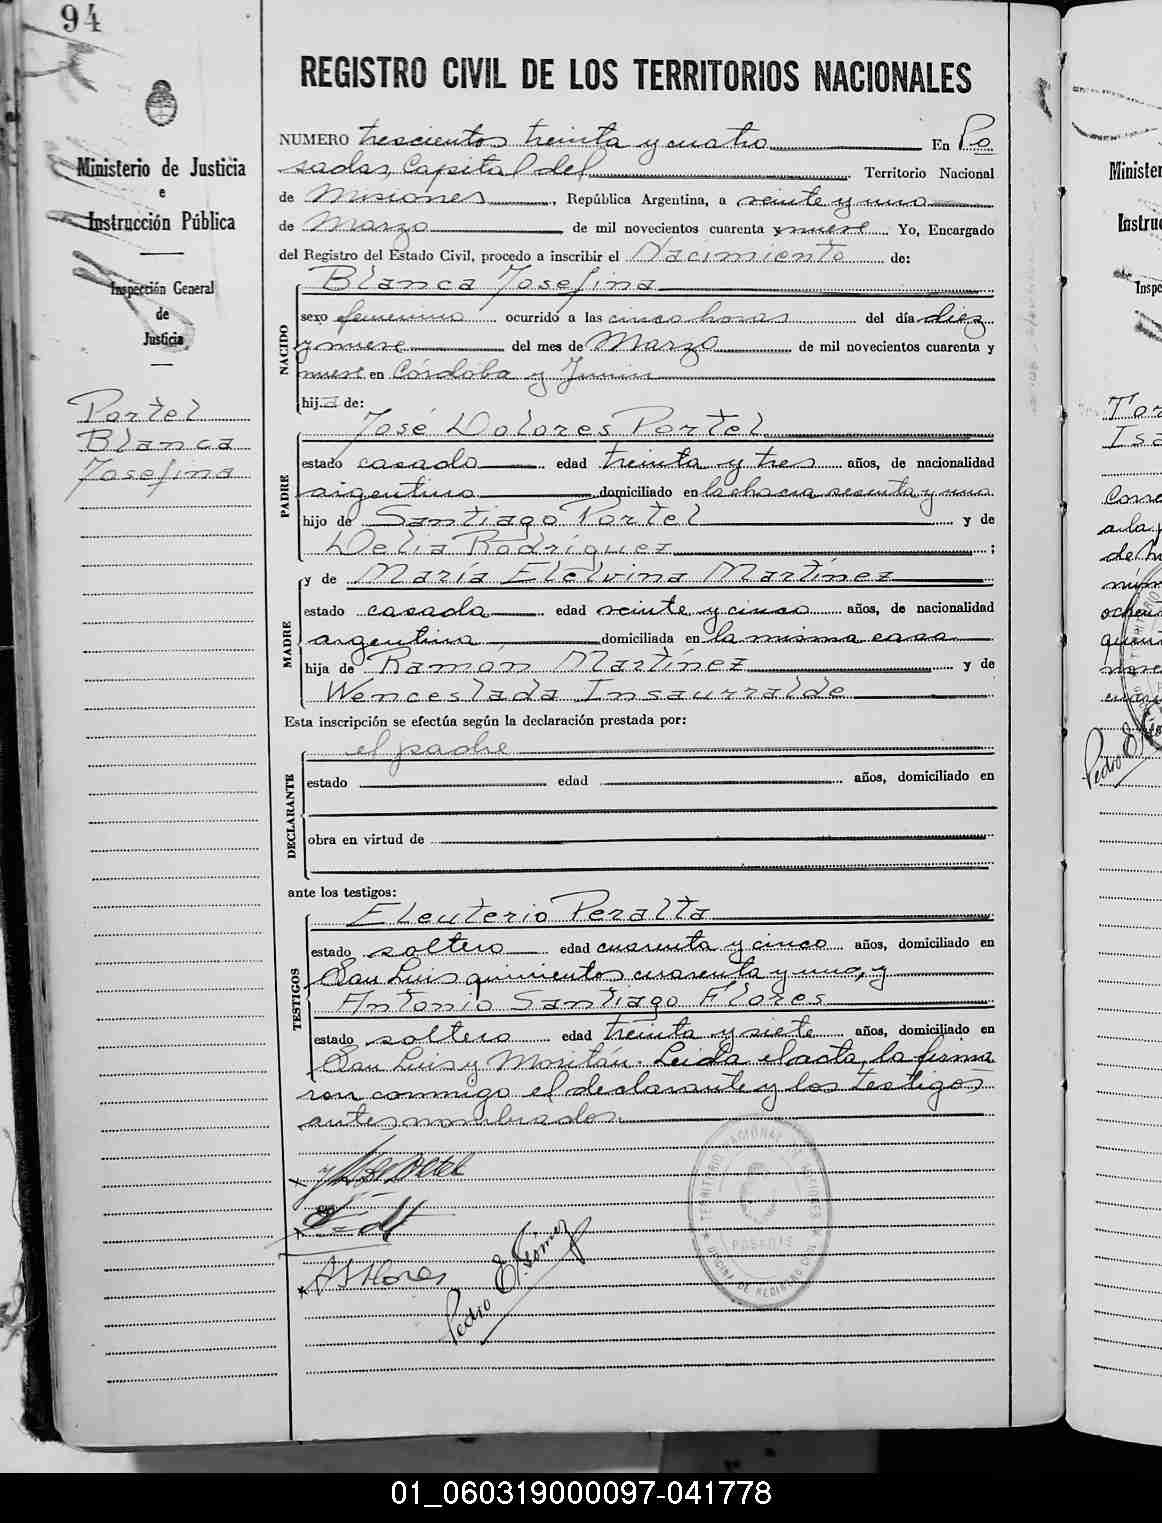 94
Ministerio de Justicia
e
Instrucción Pública
Inspección General
de
Justicia
Portel
Blanca
Josefina
REGISTRO CIVIL DE LOS TERRITORIOS NACIONALES
NUMERO trescientos treinta y cuatro En Po
sadas, Capital del Territorio Nacional
de Misiones, República Argentina, a veinte y uno
de Marzo de mil novecientos cuarenta y nueve Yo, Encargado
del Registro del Estado Civil, procedo a inscribir el Nacimiento de:
NACIDO
Blanca Josefina
sexo femenino ocurrido a las cinco horas del día diez
y nueve del mes de Marzo de mil novecientos cuarenta y
nueve en Córdoba y Junin
hija de:
PADRE
José Dolores Portel
estado casado edad treinta y tres años, de nacionalidad
argentino domiciliado en la chacra sesenta y uno
hijo de Santiago Portel y de
Delia Rodríguez ;
MADRE
y de María Etelvina Martínez
estado casada edad veinte y cinco años, de nacionalidad
argentina domiciliada en la misma casa
hija de Ramón Martínez y de
Wenceslada Insaurralde
Esta inscripción se efectúa según la declaración prestada por:
DECLARANTE
el padre
estado edad años, domiciliado en
obra en virtud de
ante los testigos:
TESTIGOS
Eleuterio Peralta
estado soltero edad cuarenta y cinco años, domiciliado en
San Luis quinientos cuarenta y uno, y
Antonio Santiago Flores
estado soltero edad treinta y siete años, domiciliado en
San Luis y Moritán. Leída el acta, la firma
ron conmigo el declarante y los testigos
antes nombrados.
A S Flores
Pedro E. Gómez
TERRITORIO NACIONAL DE MISIONES
POSADAS
OFICINA DE REGISTRO CIVIL
Minister
Instruc
Inspe
Tor
Isa
Corre
a la
de M
núm
ochen
Pedro E. Gó
01_060319000097-041778